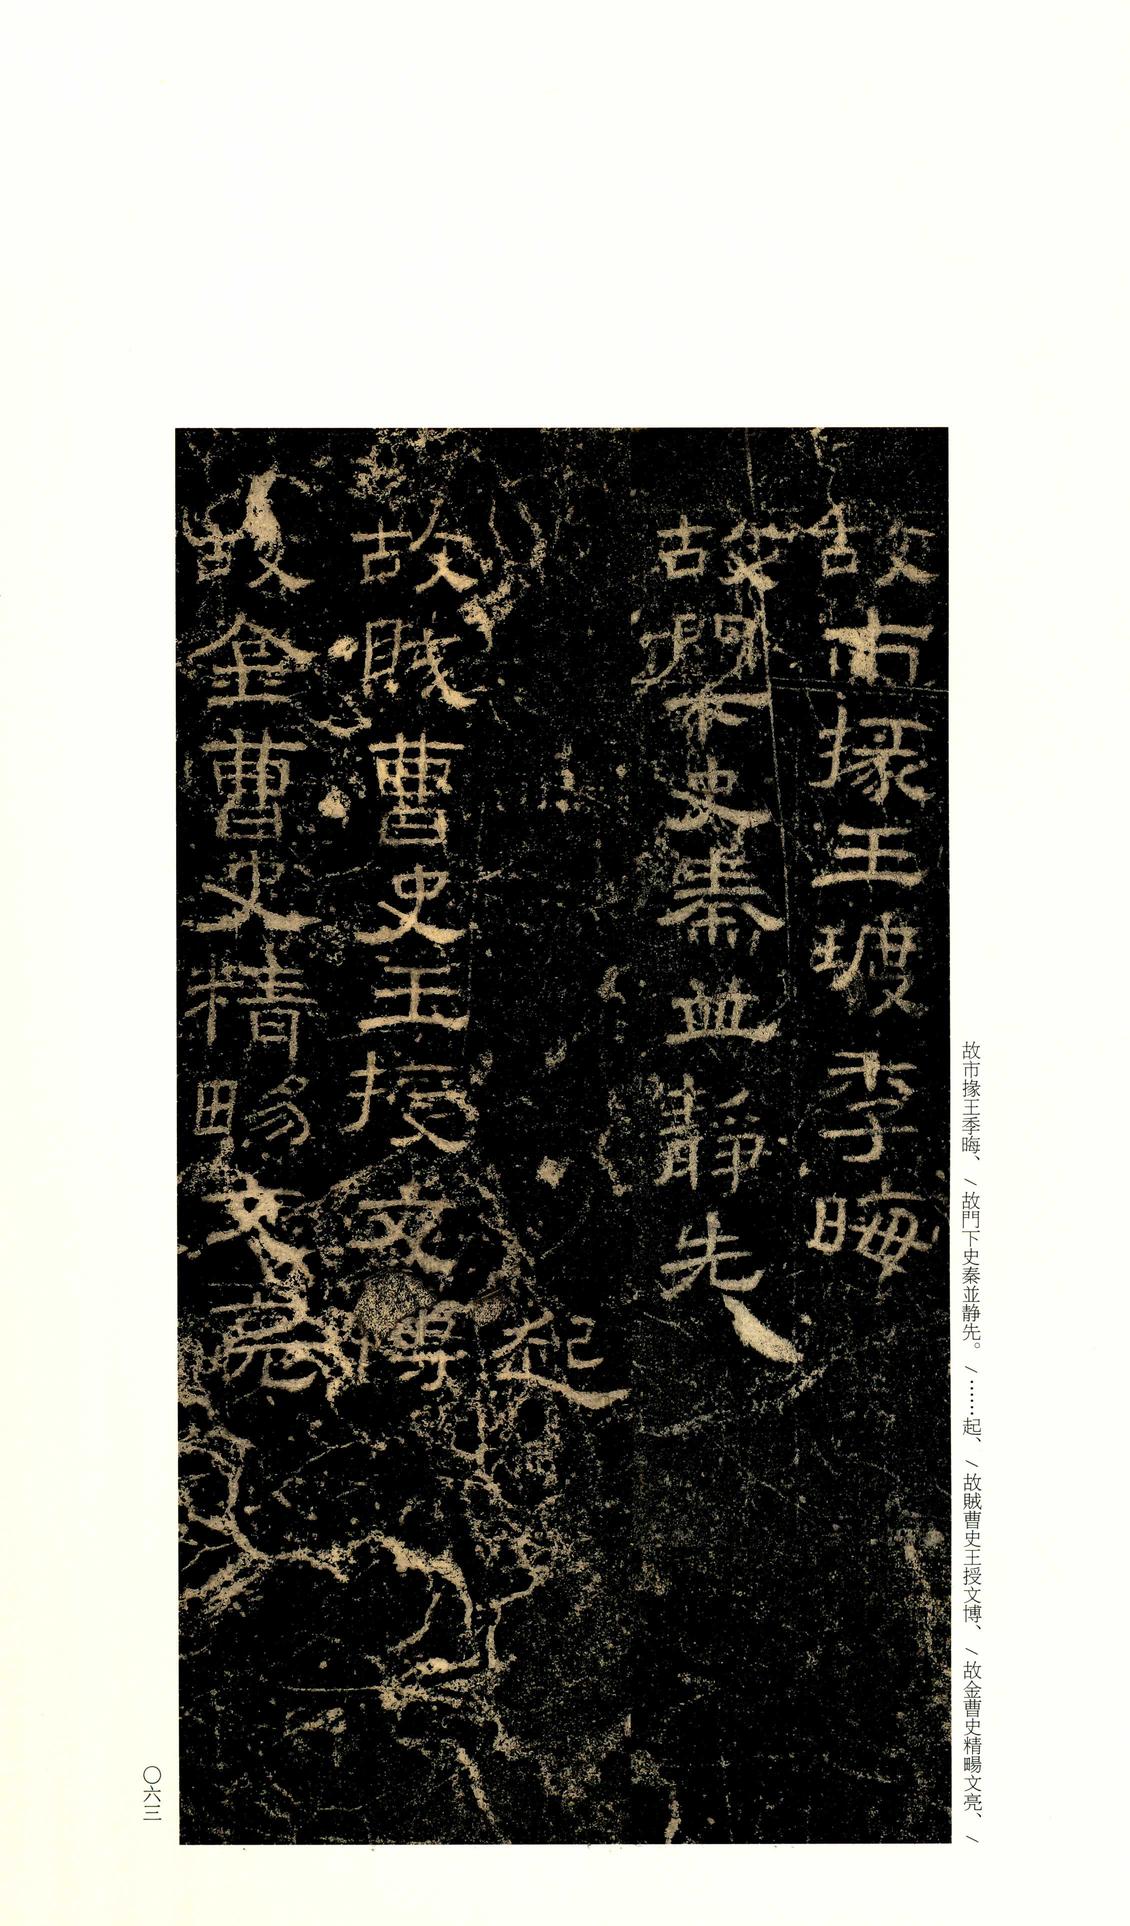 故市掾王季晦、/故門下史秦並静先。/……起、/故賊曹史王授文博、/故金曹史精畼文亮、/
故市掾王季晦
故門下史秦並静先
起
故賊曹史王授文博
故金曹史精畼文亮
〇六三